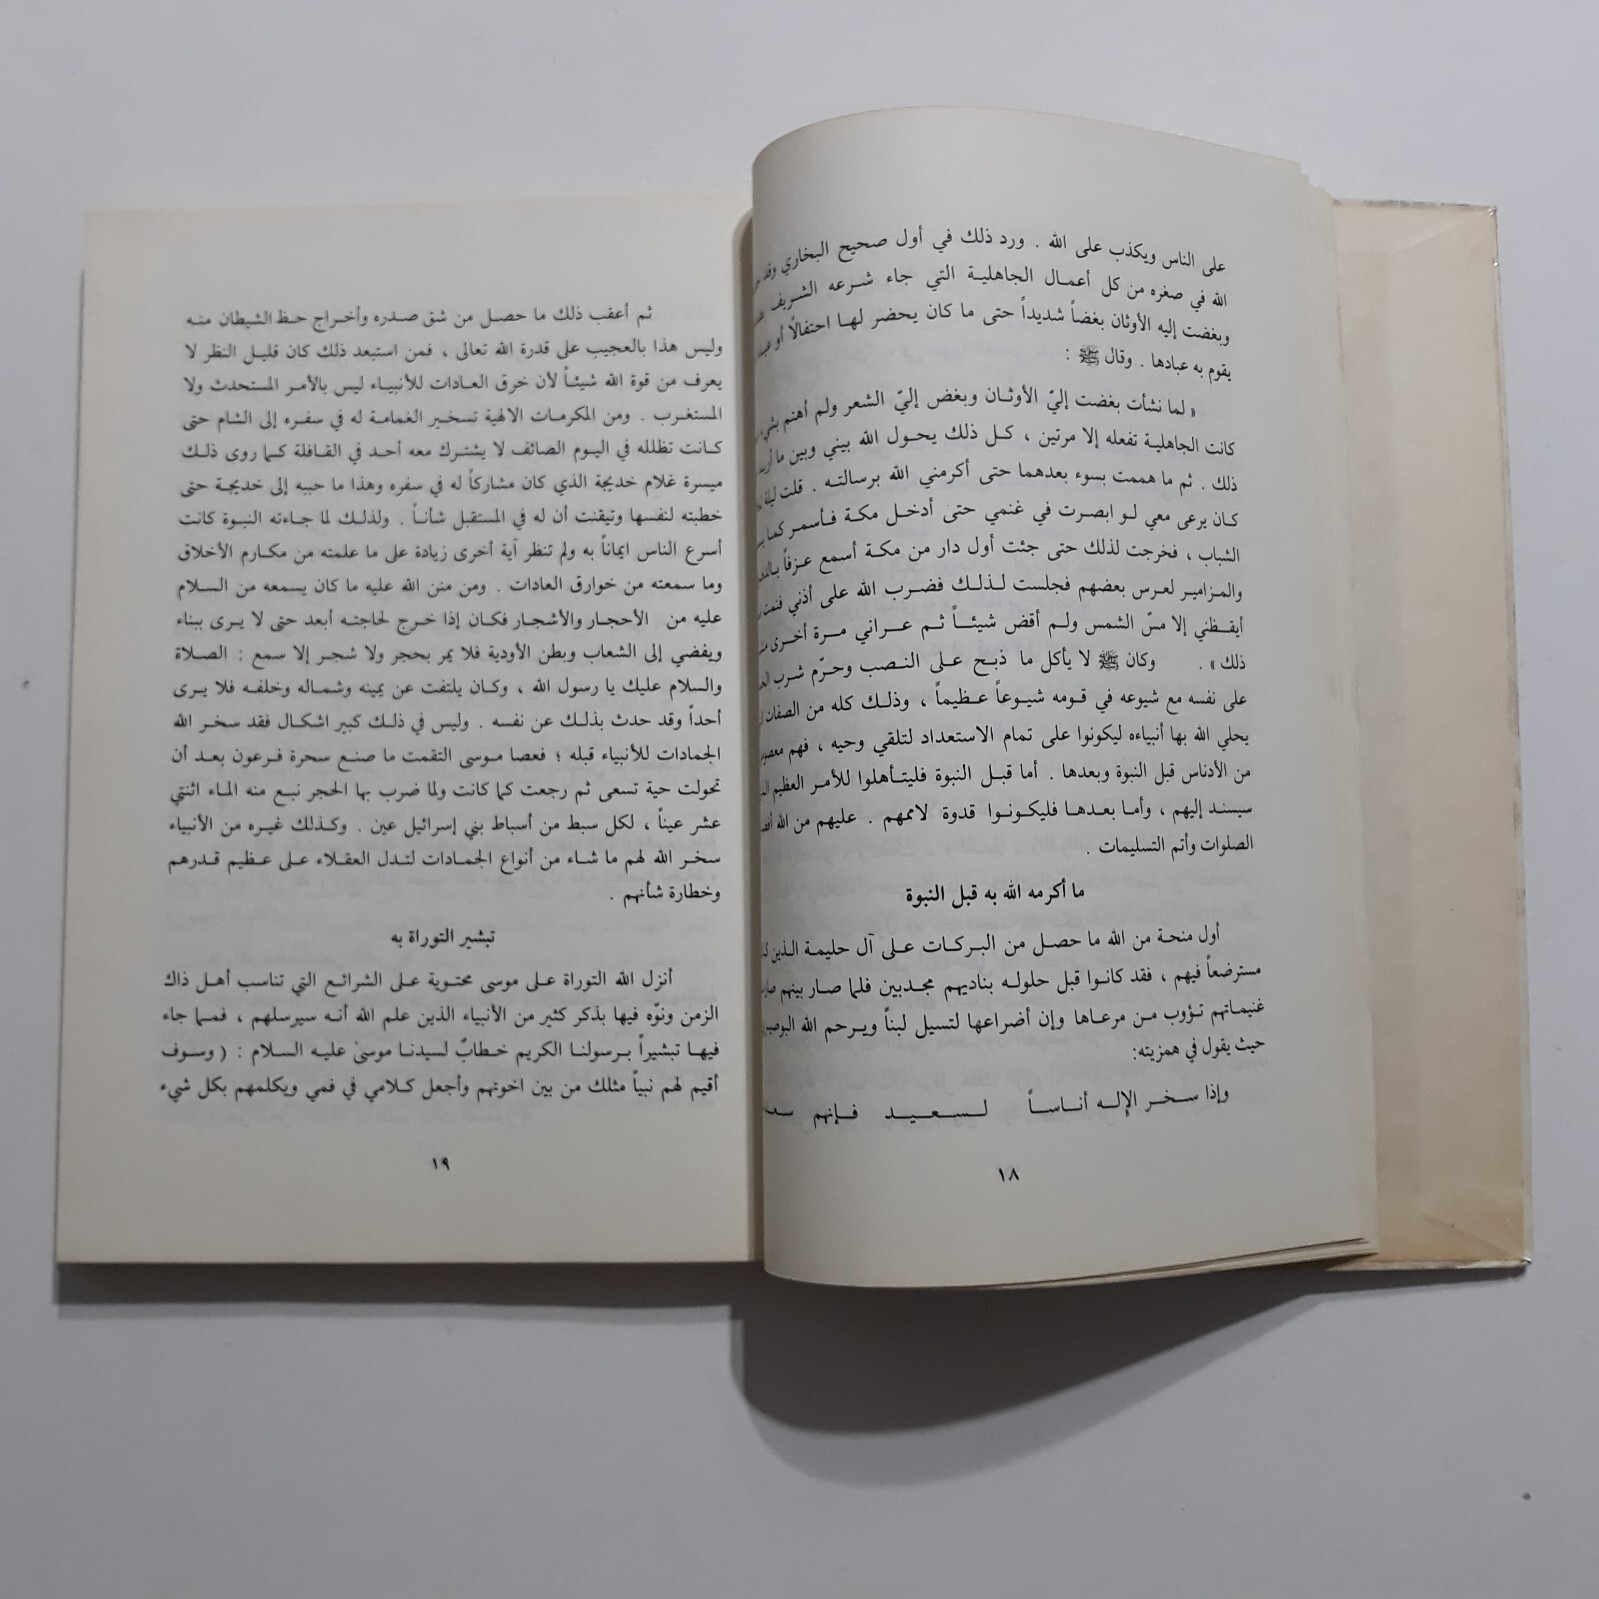 على الناس ويكذب على الله . ورد ذلك في أول صحيح البخاري وقد
الله في صغره من كل أعمال الجاهلية التي جاء شرعه الشريف
وبغضت إليه الأوثان بغضاً شديداً حتى ما كان يحضر لها احتفالًا أو
يقوم به عبادها . وقال ﷺ :
« لما نشأت بغضت إليّ الأوثان وبغض إليّ الشعر ولم أهتم
كانت الجاهلية تفعله إلا مرتين ، كل ذلك يحول الله بيني وبين ما
ذلك . ثم ما هممت بسوء بعدهما حتى أكرمني الله برسالته . قلت ليلة
كان يرعى معي لو ابصرت في غنمي حتى أدخل مكة فأسمر كما
الشباب ، فخرجت لذلك حتى جئت أول دار من مكة أسمع عزفاً
والمزامير لعرس بعضهم فجلست لذلك فضرب الله على أذني فنمت
أيقظني إلا مسّ الشمس ولم أقض شيئاً ثم عراني مرة أخرى
ذلك » . وكان ﷺ لا يأكل ما ذبح على النصب وحرّم شرب
على نفسه مع شيوعه في قومه شيوعاً عظيماً ، وذلك كله من الصفات
يحلي الله بها أنبياءه ليكونوا على تمام الاستعداد لتلقي وحيه ، فهم
من الأدناس قبل النبوة وبعدها . أما قبل النبوة فليتأهلوا للأمر العظيم
سيسند إليهم ، وأما بعدها فليكونوا قدوة لاممهم . عليهم من الله
الصلوات وأتم التسليمات .
ما أكرمه الله به قبل النبوة
أول منحة من الله ما حصل من البركات على آل حليمة الذين
مسترضعاً فيهم ، فقد كانوا قبل حلوله بناديهم مجدبين فلما صار بينهم
غنيماتهم تؤوب من مرعاها وإن أضراعها لتسيل لبناً ويرحم الله
حيث يقول في همزيته:
وإذا سخر الإله أناساً لسعيد فإنهم
١٨
ثم أعقب ذلك ما حصل من شق صدره وأخراج حظ الشيطان منه
وليس هذا بالعجيب على قدرة الله تعالى ، فمن استبعد ذلك كان قليل النظر لا
يعرف من قوة الله شيئاً لأن خرق العادات للأنبياء ليس بالأمر المستحدث ولا
المستغرب . ومن المكرمات الالهية تسخير الغمامة له في سفره إلى الشام حتى
كانت تظلله في اليوم الصائف لا يشترك معه أحد في القافلة كما روى ذلك
ميسرة غلام خديجة الذي كان مشاركاً له في سفره وهذا ما حببه إلى خديجة حتى
خطبته لنفسها وتيقنت أن له في المستقبل شأناً . ولذلك لما جاءته النبوة كانت
أسرع الناس ايماناً به ولم تنظر آية أخرى زيادة على ما علمته من مكارم الأخلاق
وما سمعته من خوارق العادات . ومن منن الله عليه ما كان يسمعه من السلام
عليه من الأحجار والأشجار فكان إذا خرج لحاجته أبعد حتى لا يرى ببناء
ويفضي إلى الشعاب وبطن الأودية فلا يمر بحجر ولا شجر إلا سمع : الصلاة
والسلام عليك يا رسول الله ، وكان يلتفت عن يمينه وشماله وخلفه فلا يرى
أحداً وقد حدث بذلك عن نفسه . وليس في ذلك كبير اشكال فقد سخر الله
الجمادات للأنبياء قبله ؛ فعصا موسى التقمت ما صنع سحرة فرعون بعد أن
تحولت حية تسعى ثم رجعت كما كانت ولما ضرب بها الحجر نبع منه الماء اثنتي
عشر عيناً ، لكل سبط من أسباط بني إسرائيل عين . وكذلك غيره من الأنبياء
سخر الله لهم ما شاء من أنواع الجمادات لتدل العقلاء على عظيم قدرهم
وخطارة شأنهم .
تبشير التوراة به
أنزل الله التوراة على موسى محتوية على الشرائع التي تناسب أهل ذاك
الزمن ونوّه فيها بذكر كثير من الأنبياء الذين علم الله أنه سيرسلهم ، فمما جاء
فيها تبشيراً برسولنا الكريم خطابٌ لسيدنا موسىٰ عليه السلام : ( وسوف
أقيم لهم نبياً مثلك من بين اخوتهم وأجعل كلامي في فمي ويكلمهم بكل شيء
١٩